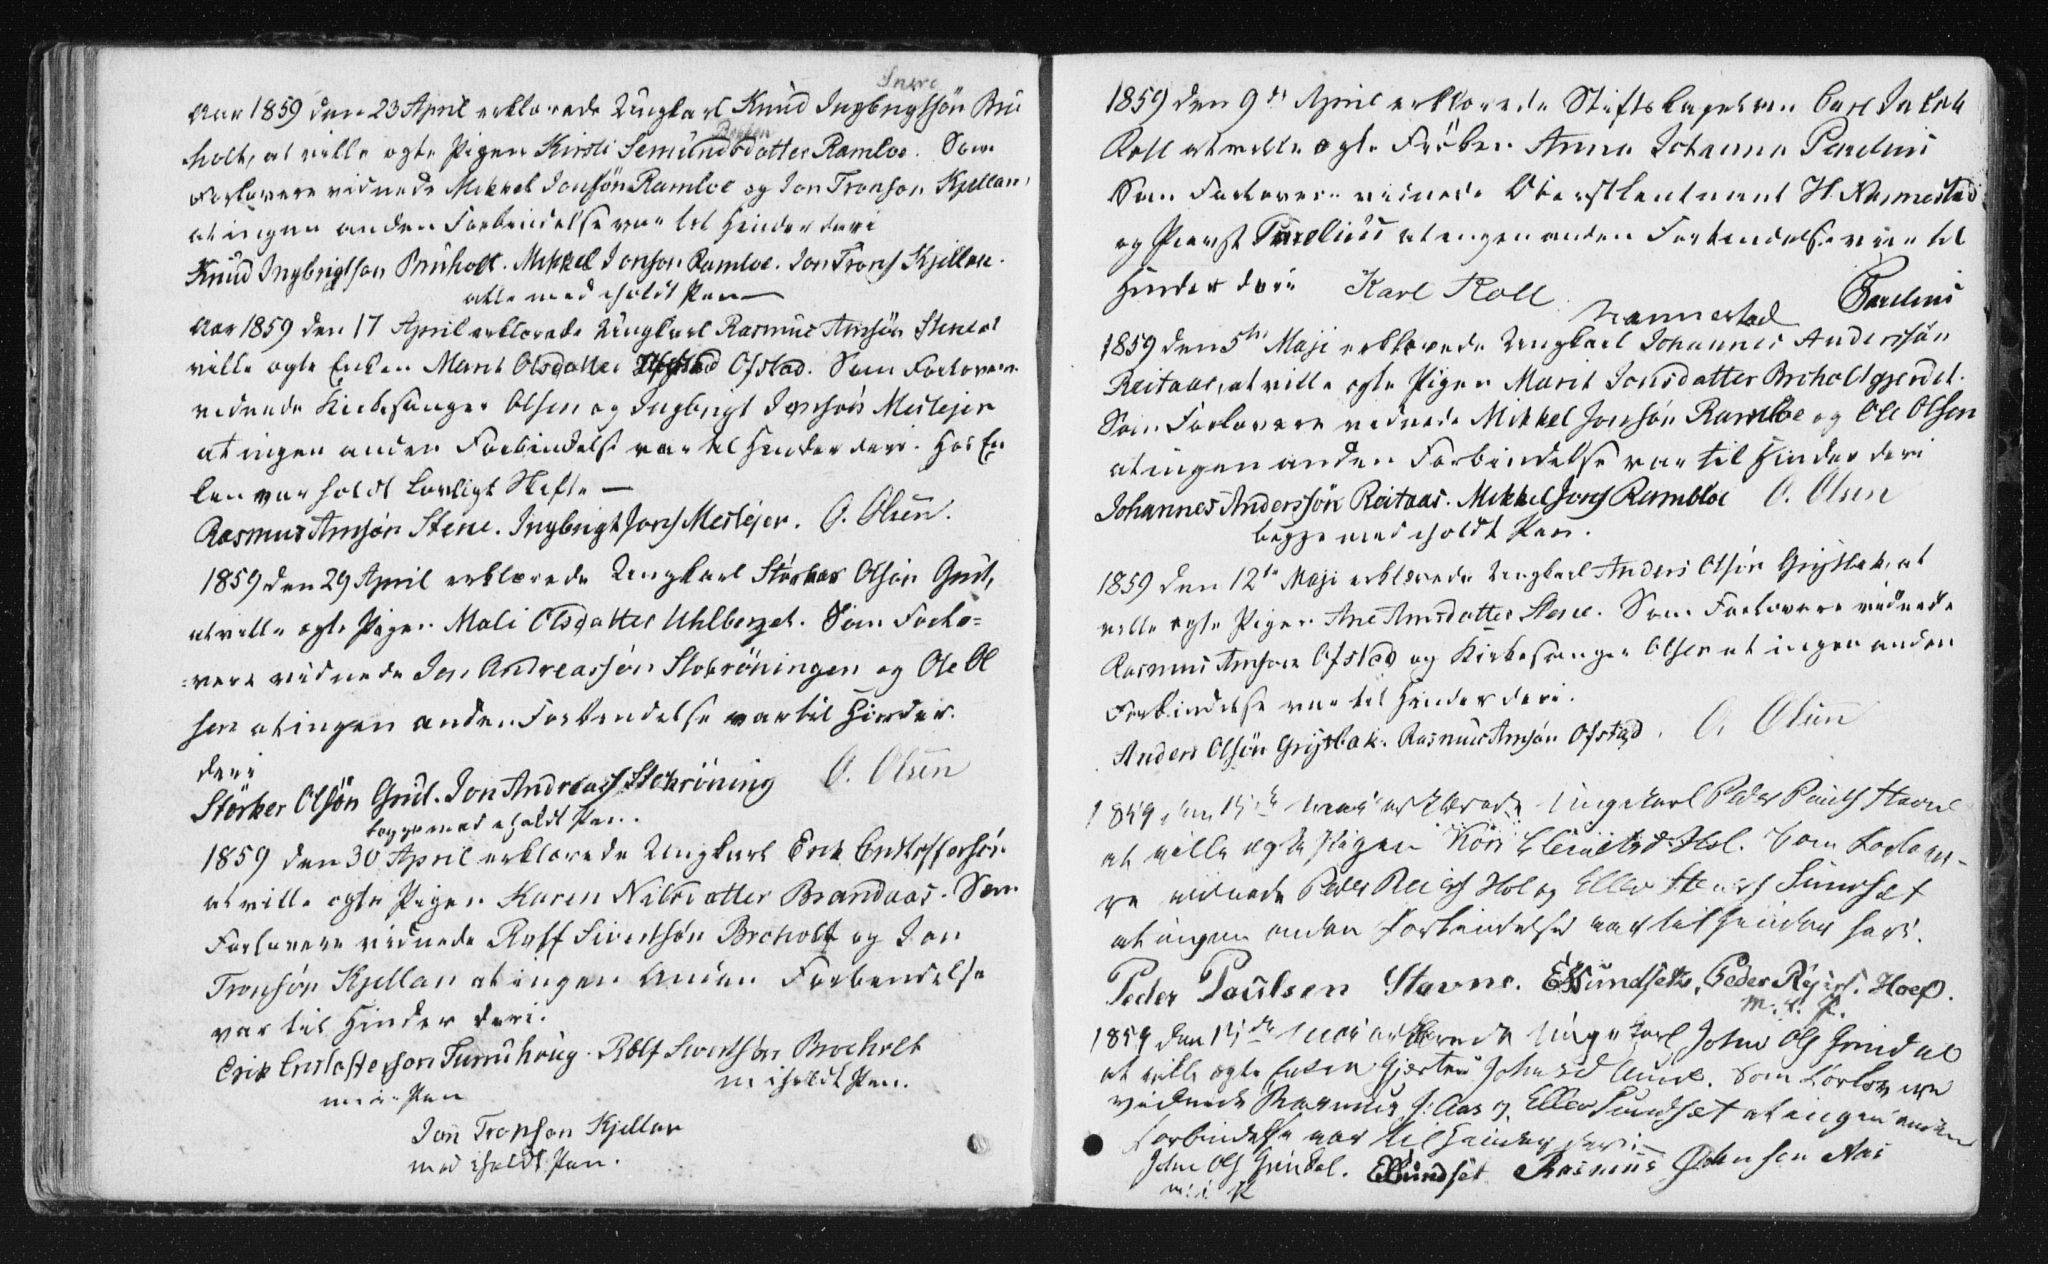 Snere
Aar 1859 den 23 April erklærede Ungkarl Knud Ingbrigtsön Bru
Brekken
holt, at ville ægte Pigen Kirsti Semundsdatter Ramloe. Som
Forlovere vidnede Mikkel Jonsön Ramloe og Jon Tronson Kjellan,
at ingen anden Forbindelse var til Hinder deri
Knud Ingbrigtson Bruholt. Mikkel Jonson Ramloe. Jon Trons Kjellan.
alle med iholdt Pen
Aar 1859 den 17 April erklærede Ungkarl Rasmus Arnsön Stene at
ville ægte Enken Marit Olsdatter Ofstad. Som Forlovere
vidnede Kirkesanger Olsen og Ingbrigt Jonsön Meslejer
at ingen anden Forbindelse var til Hinder deri. Hos En
ken var holdt lovligt Skifte
Rasmus Arnsön Stene. Ingbrigt Jons Meslejer. O. Olsen.
1859 den 29 April erklærede Ungkarl Störker Olsön Grut,
at ville ægte Pigen Mali Olsdatter Uhlberget. Som Forlo=
=vere vidnede Jon Andreassön Stokröningen og Ole Ol
sen at ingen anden Forbindelse var til Hinder
deri
Störker Olsön Grut. Jon Andreas Stokröning O. Olsen
begge med iholdt Pen.
1859 den 30 April erklærede Ungkarl Erik Eristoffersön
at ville ægte Pigen Karen Nilsdatter Brandaas. Som
Forlovere vidnede Rolf Sivertsön Broholt og Jon
Tronsön Kjellan at ingen anden Forbindelse
var til Hinder deri.
Erik Eristofferson Tunnhoug. Rolf Sivertsön Broeholt
m i Pen m iholdt Pen.
Jon Tronson Kjellan
med iholdt Pen.
1859 den 9de April erklærede Stiftskapelan Carl Jakob
Roll at ville ægte Fröken Anna Johanna Parelius
Som Forlovere vidnede Oberstleutnant H. Nannestad
og Provst Parelius at ingen anden Forbindelse var til
Hinder deri Karl Roll Nannestad Parelius
1859 den 5te Maji erklærede Ungkarl Johannes Anderssön
Reitaas, at ville ægte Pigen Marit Jonsdatter Broholtgjerdet.
Som Forlovere vidnede Mikkel Jonsön Ramloe og Ole Olsen
at ingen anden Forbindelse var til Hinder deri
Johannes Anderssön Reitaas. Mikkel Jons Rambloe O. Olsen
begge med iholdt Pen.
1859 den 12te Maji erklærede Ungkarl Anders Olsön Grytbak, at
ville ægte Pigen Ane Arnsdatter Stene. Som Forlovere vidnede
Rasmus Arnsön Ofstad og Kirkesanger Olsen at ingen anden
Forbindelse var til Hinder deri.
Anders Olsön Grytbak. Rasmus Arnsön Ofstad. O. Olsen
1859 den 15de Mai erklærede Ungekarl Peder Pauls Stavne
at ville ægte Pigen Kari Hol. Som Forlove-
re vidnede Peder Hol og Ellev Sundset
at ingen anden Forbindelse var til Hinder heri.
Peder Paulsen Stavne. ESundseth, Peder Hoel.
m. i. P.
1859 den 15de Mai erklærede Ungekarl John Ols Grindal
at ville ægte Enken Gjertru Johnsd Aune. Som Forlovere
vidnede Rasmus J: Aas og Ellev Sundset at ingen anden
forbindelse var til Hinder heri
John Ols Grindal. ESundset Rasmus Johnsen Aas
m: i. P